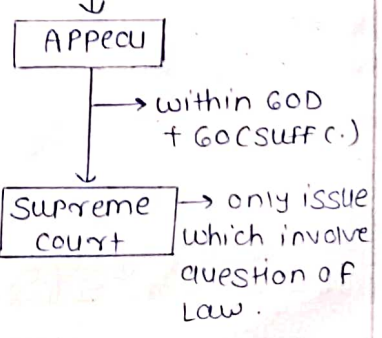 APPecu
within 60D
+ 60(Suff C.)
Supreme
court
only issue
which involve
question of
Law.